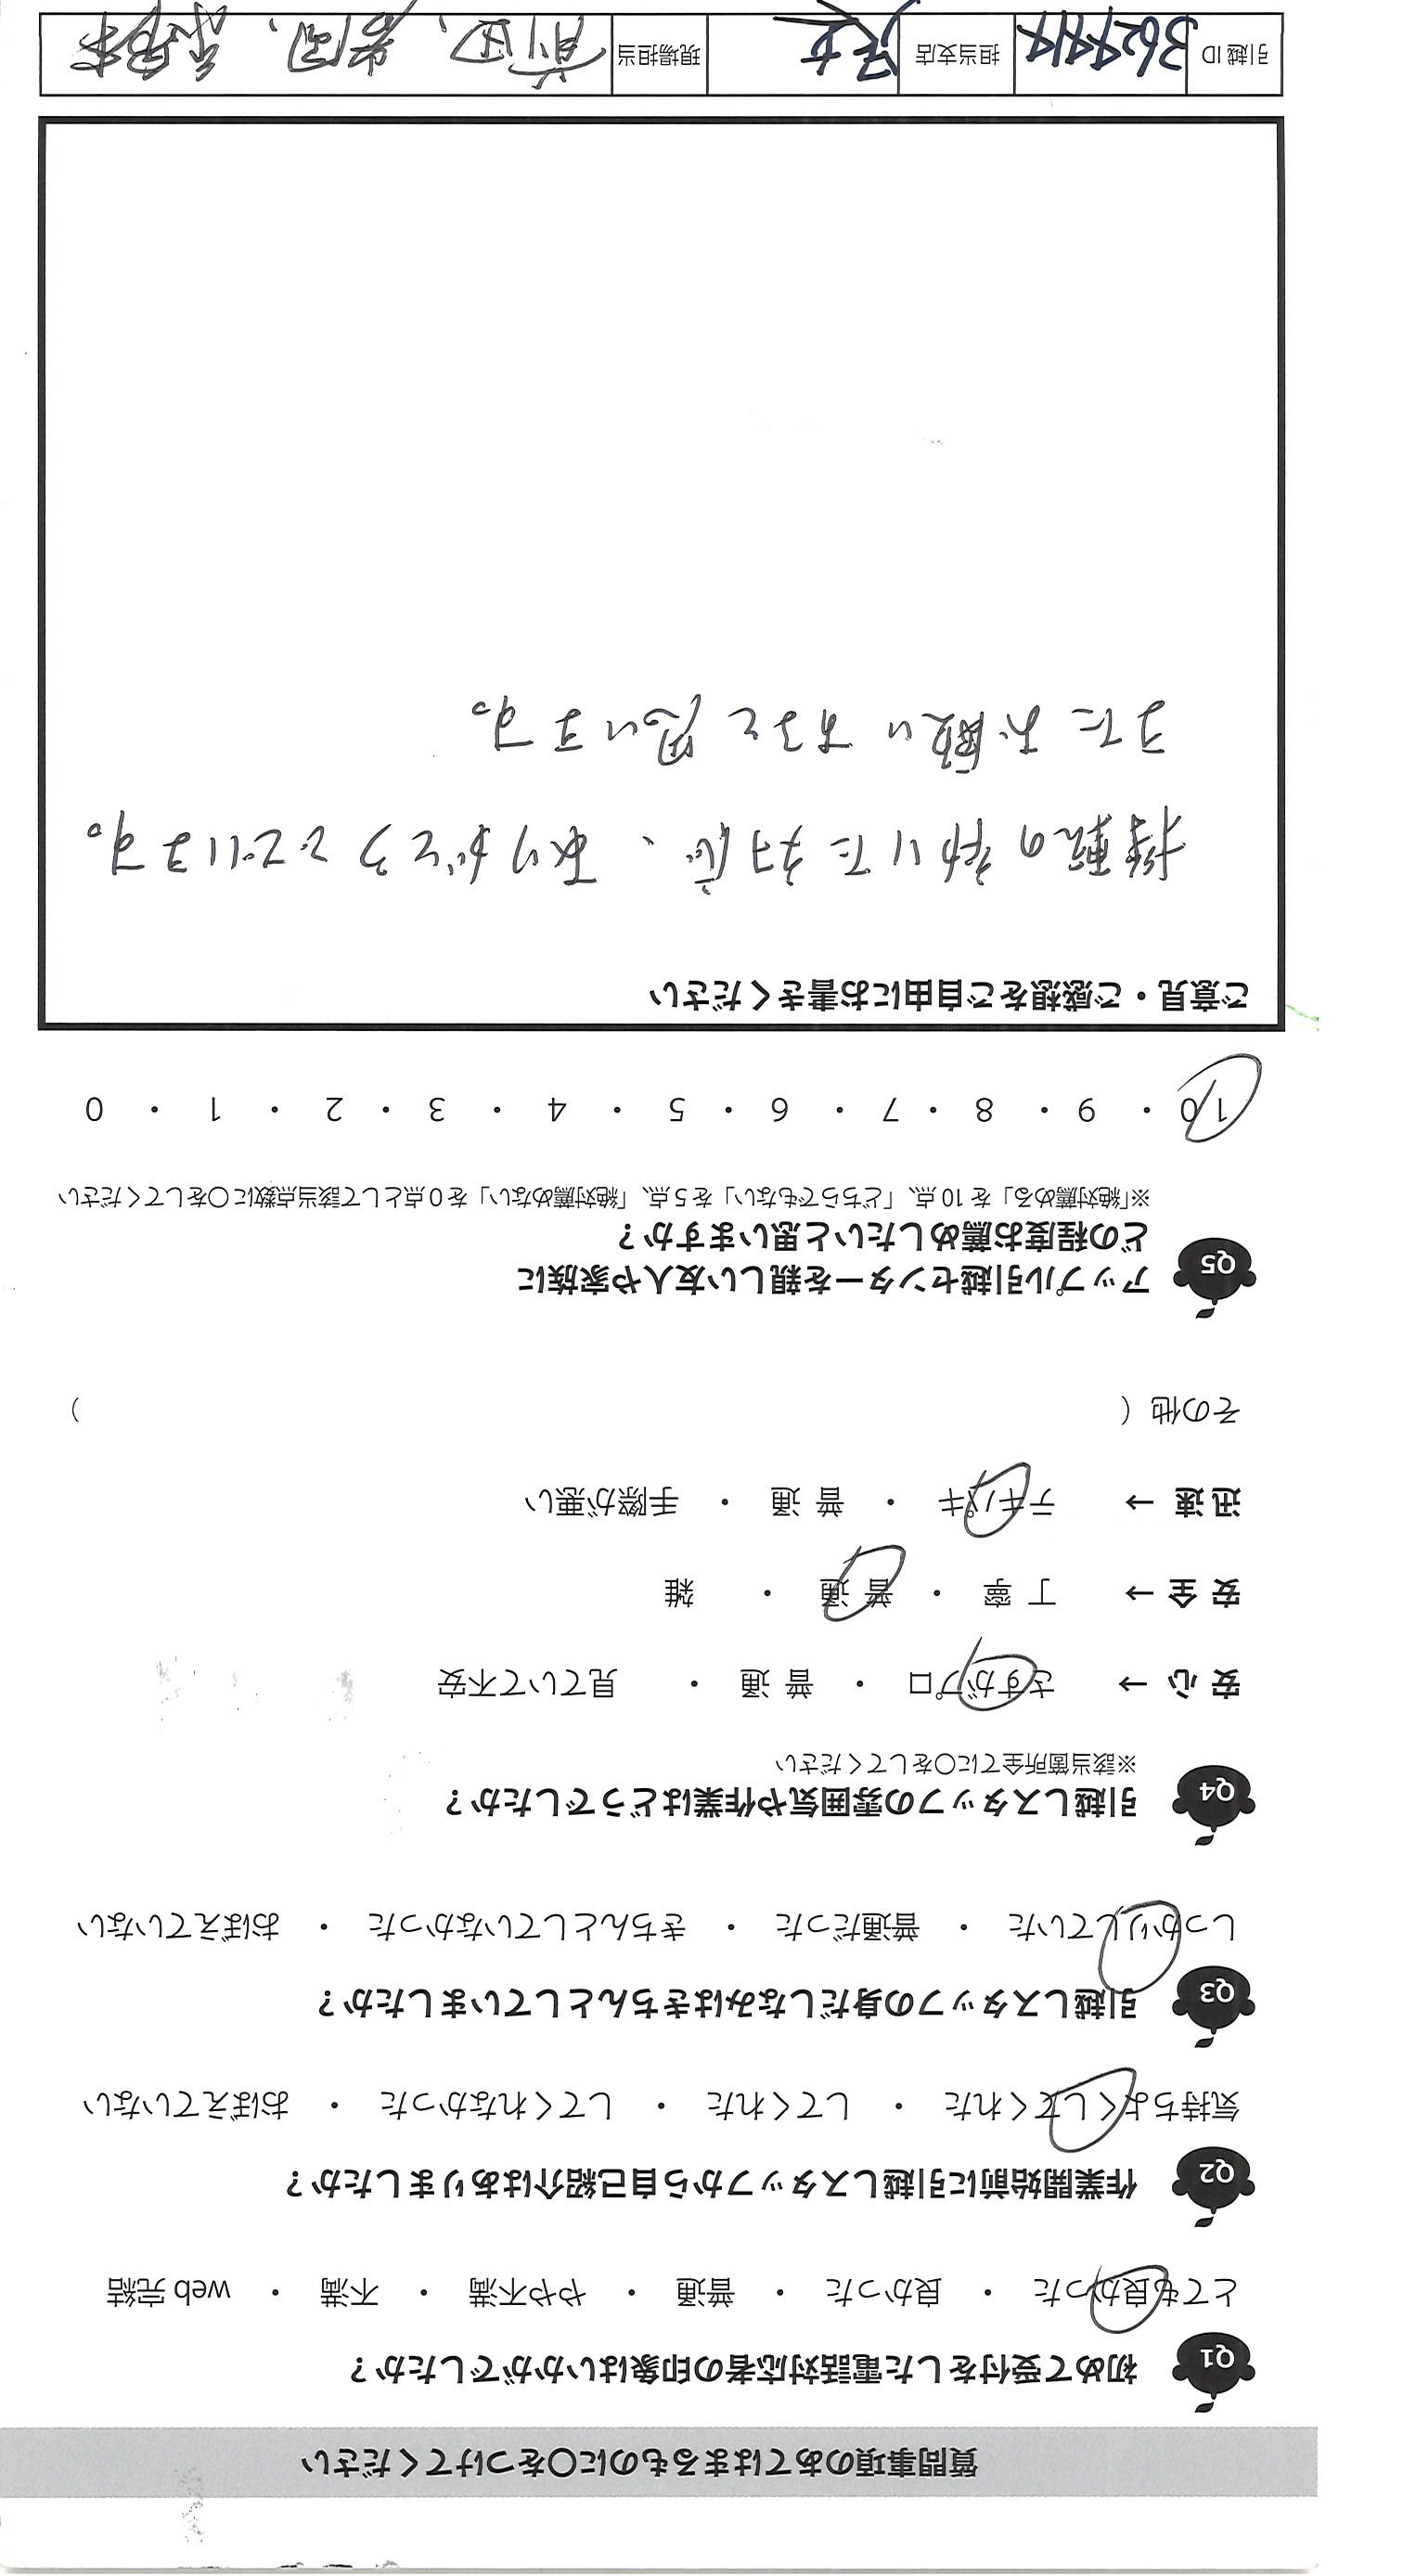 質問事項のあてはまるものに〇をつけてください
Q1 初めて受付をした電話対応者の印象はいかがでしたか？
とても良かった ・ 良かった ・ 普通 ・ やや不満 ・ 不満 ・ web 完結
Q2 作業開始前に引越しスタッフから自己紹介はありましたか？
気持ちよくしてくれた ・ してくれた ・ してくれなかった ・ おぼえていない
Q3 引越しスタッフの身だしなみはきちんとしていましたか？
しっかりしていた ・ 普通だった ・ きちんとしていなかった ・ おぼえていない
Q4 引越しスタッフの雰囲気や作業はどうでしたか？
※該当箇所全てに〇をしてください
安 心 → さすがプロ ・ 普 通 ・ 見ていて不安
安 全 → 丁 寧 ・ 普 通 ・ 雑
迅 速 → テキパキ ・ 普 通 ・ 手際が悪い
その他（ ）
Q5 アップル引越センターを親しい友人や家族に
どの程度お薦めしたいと思いますか？
※「絶対薦める」を 10 点、「どちらでもない」を 5 点、「絶対薦めない」を 0 点として該当点数に〇をしてください
10 ・ 9 ・ 8 ・ 7 ・ 6 ・ 5 ・ 4 ・ 3 ・ 2 ・ 1 ・ 0
ご意見・ご感想をご自由にお書きください
た対応、ありがとうございます。
またお願いすると思います。
引越 ID 担当支店 現場担当 前田、